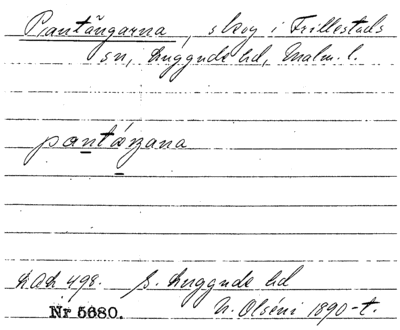 Pantängarna, skog i Frillestads
sn, Luggude hd, Malm. l.
pantæŋana
LAL 498. S. Luggude hd
Nr 5680. N. Olséni 1890-t.